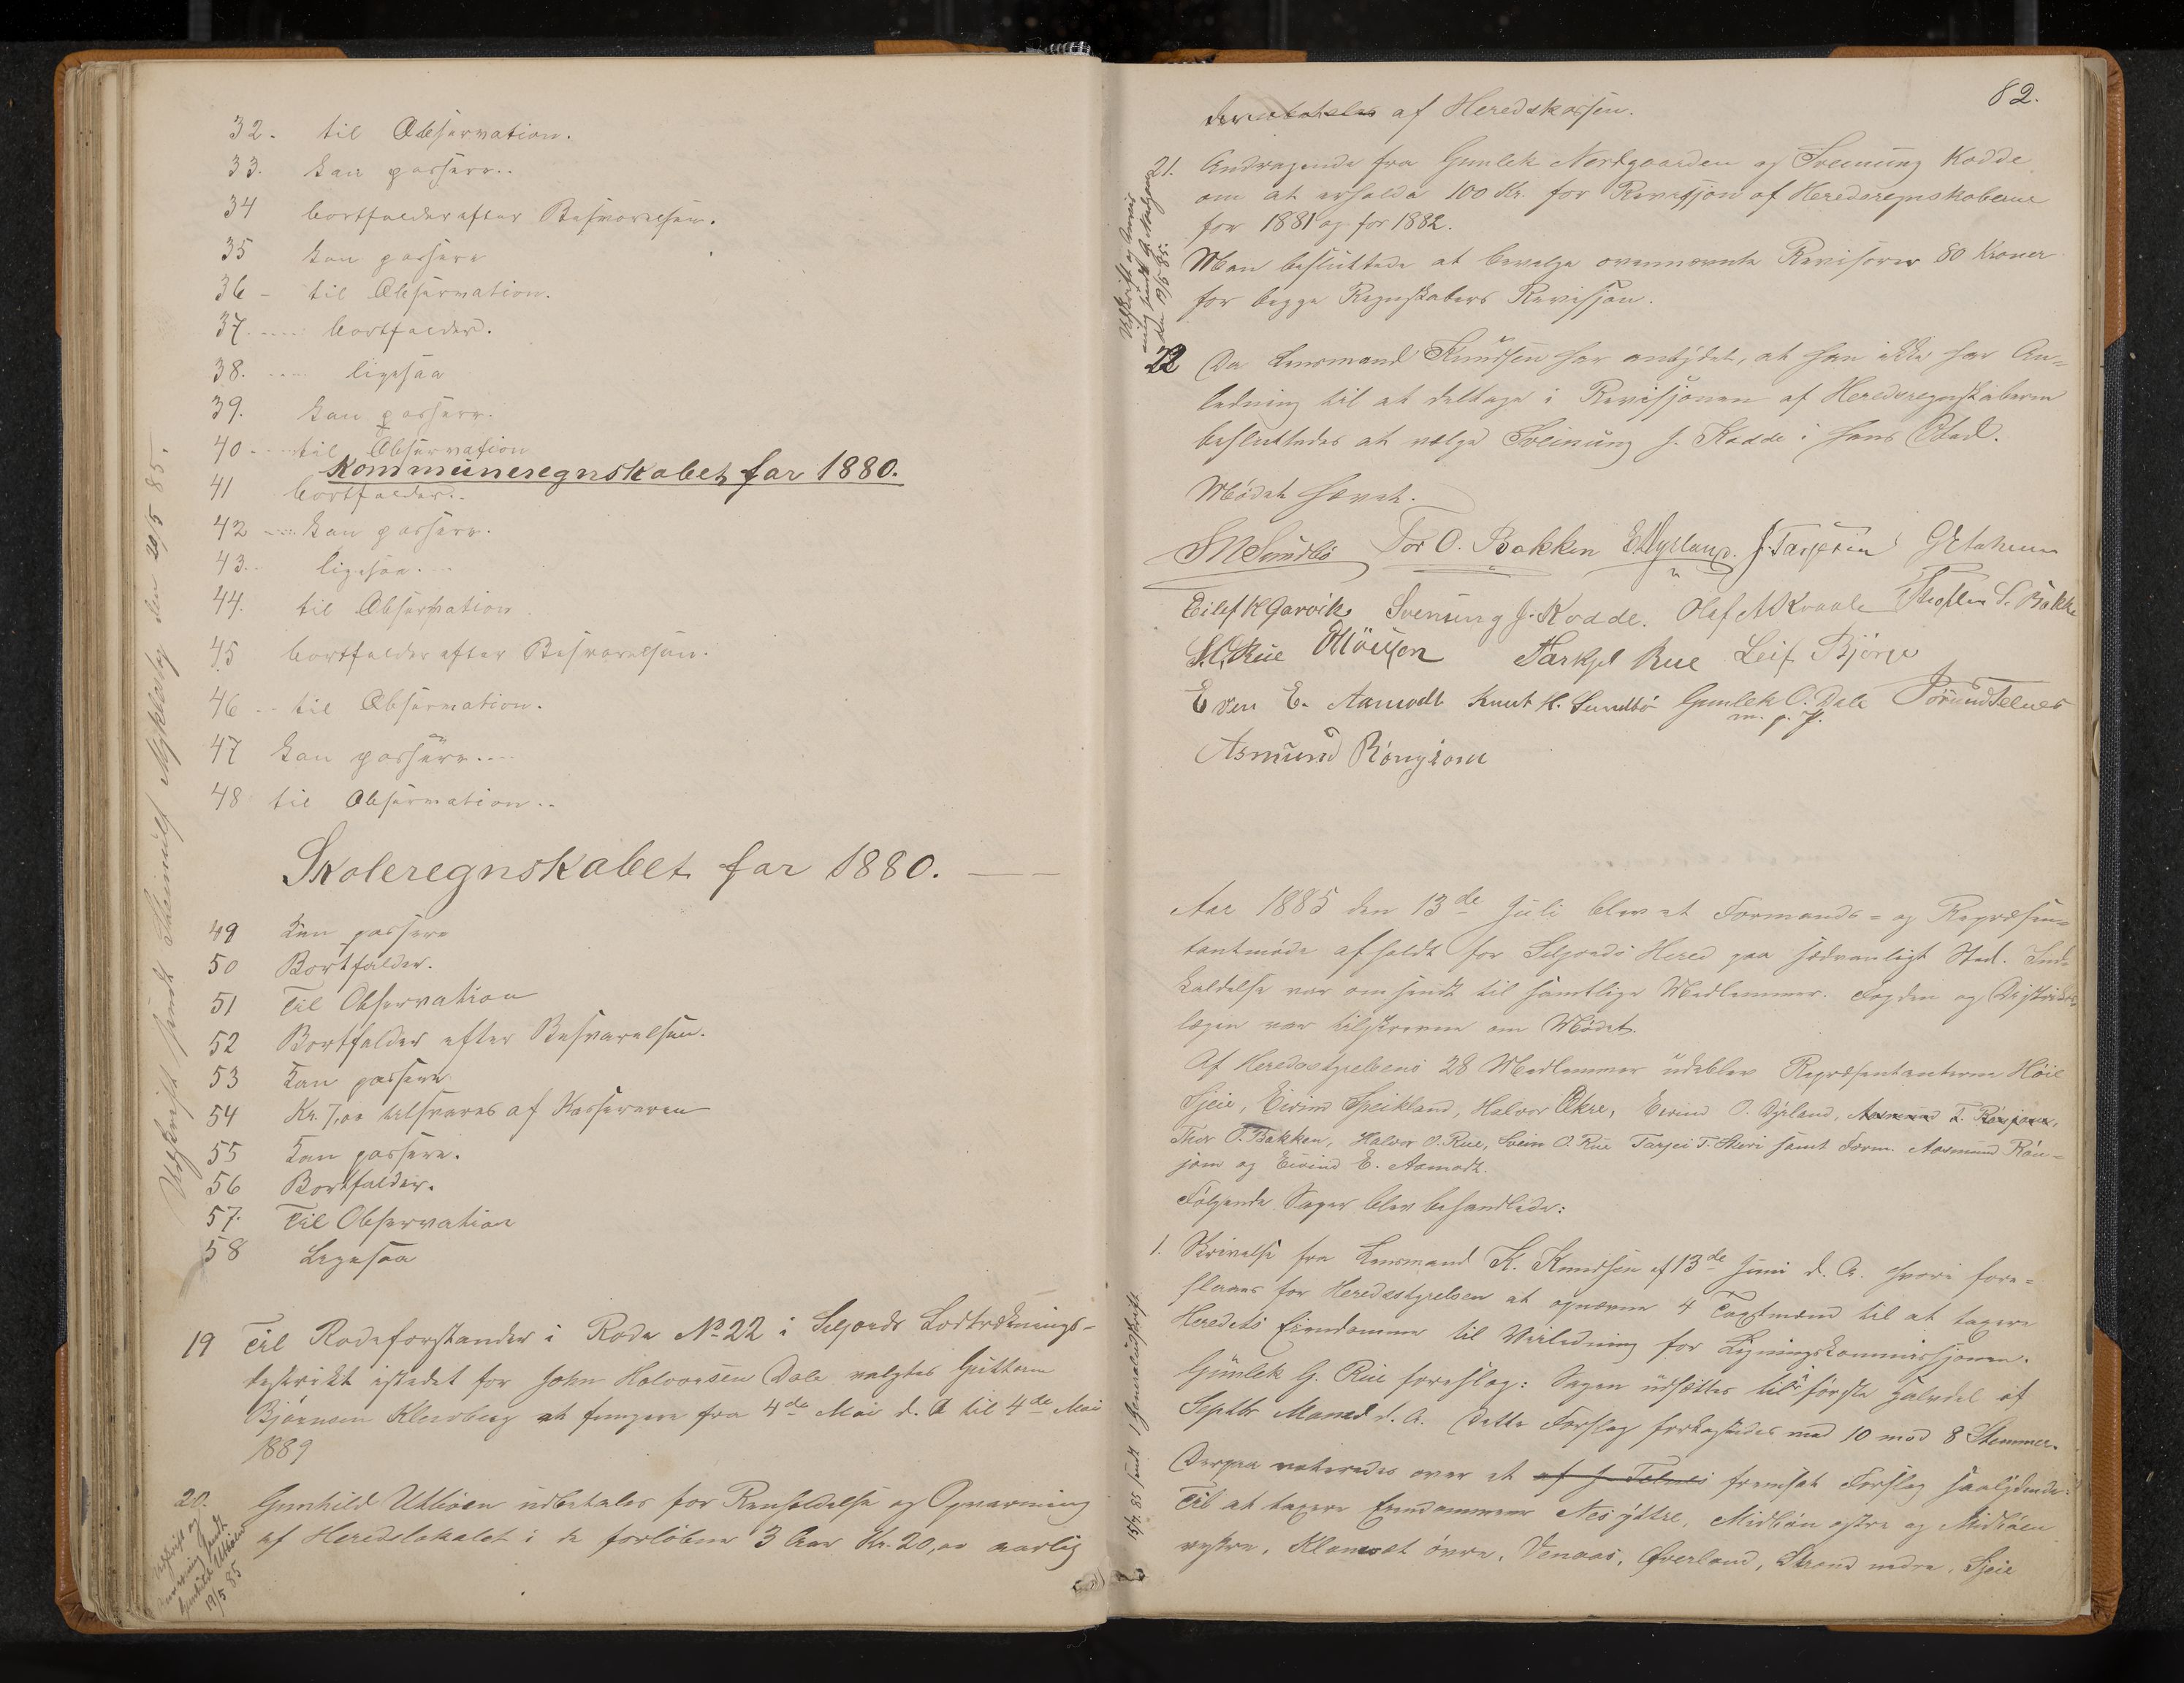 32. til Observation.
33. kan passere..
34 bortfalder efter Besvarelsen.
35 kan passere
36 - til Observation.
37 .... bortfalder.
38. .... ligesaa
39. kan passere.
40 .... til Observation
Kommuneregnskabet for 1880.
41 bortfalder..
42 .... kan passere.
43.. ligesaa....
44. til Observation.
45 bortfalder efter Besvarelsen.
46 .. til Observation.
47 kan passere....
48 til Observation..
Skoleregnskabet for 1880. — —
49 kan passere
50 Bortfalder.
51 Til Observation
52 Bortfalder efter Besvarelsen.
53 kan passere
54 Kr. 7,00 tilsvares af Kassereren
55 kan passere.
56 Bortfalder.
57. Til Observation
58 Ligesaa
Udskrift sendt Steinulf Mykleby den 20/5 85.
19 Til Rodeforstander i Rode No 22 i Seljords Lodtræknings-
distrikt istedet for John Halvorsen Dale valgtes Guttorm
Bjørnsen Kleivberg at fungere fra 4de Mai d. A til 4de Mai
1889
20. Gunhild Utbøen udbetales for Renholdelse og Opvarming
af Heredslokalet i de forløbne 3 Aar Kr. 20,00 aarlig
Udskrift og
Anvisning sendt
Gunhild Utbøen
19/5 85
82.
af Heredskassen.
21. Andragende fra Gunlek Nordgaarden og Sveinung Kodde
om at erholde 100 Kr. for Revisjon af Heredsregnskaberne
for 1881 og for 1882.
Man besluttede at bevilge ovennævnte Revisorer 80 Kroner
for begge Regnskabers Revisjon.
Udskrift og Anvis
ning sendt G. Nordgaarden
den 19/5 85.
22 Da Lensmand Knudsen har antydet, at han ikke har An=
ledning til at deltage i Revisjonen af Heredsregnskaberne
besluttedes at vælge Sveinung J. Kodde i hans Sted.
Mødet hævet.
S M Sundbö Tor O. Bakken E Nyland. J. Tarjesen
Eilef K Garvik Svenung J. Kodde. Olef A Kvaale S. Bakke
S. O. Rue Tarkjel Rue Leif Björge
Even E. Aamodt Knut H. Sundbö Gunlek O. Dale Jörund Telnes
m. p. P.
Asmund Rönjom
Aar 1885 den 13de Juli blev et Formands- og Repræsen=
tantmøde afholdt for Seljords Hered paa sædvanligt Sted. Ind=
kaldelse var omsendt til samtlige Medlemmer. Fogden og Distrikts
lægen var tilskrevne om Mødet.
Af Heredsstyrelsens 28 Medlemmer udeblev Repræsentanterne Höie
Sjeie, Eivind Speikland, Halvor Økre, Eivind O. Dyrland, Aasmund T. Rönjom,
Thor O. Bakken, Halvor O. Rue, Svein O. Rue Tarjei T. Skori samt Form. Aasmund Rön=
jom og Eivind E. Aamodt.
Følgende Sager blev behandlede:
1. Skrivelse fra Lensmand K. Knudsen af 13de Juni d. A. hvori fore=
slaaes for Heredsstyrelsen at opnævne 4 Taxtmænd til at taxere
Heredets Eiendomme til Veiledning for Ligningskommissjonen.
Gunlek G. Rue foreslog: Sagen udsættes til i første Halvdel af
Septbr Maaned d. A. Dette Forslag forkastedes med 10 mod 8 Stemmer.
Derpaa voteredes over et af J. Telnes fremsat Forslag saalydende:
Til at taxere Eiendommene Nes yttre, Midbøen østre og Midbøen
vestre, Klomset övre, Venaas, Överland, Strand nedre, Sjeie
15/7 85 sendt 1 Genneralutskrift